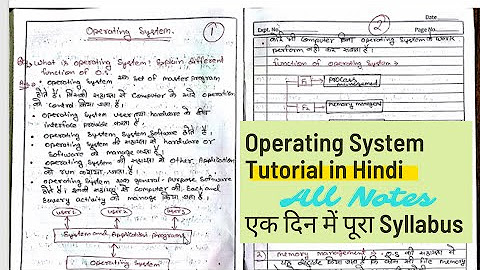 Operating System.
1
What is operating System? Explain different
function of O.S.
operating System एक set of master program
होते हैं। जिसकी सहायता से Computer के सारे operation
को control किया जाता है।
operating System user तथा hardware के बीच
interface provide करता है।
operating System System Software होते हैं।
operating System की सहायता से hardware or
Software को manage करते हैं
operating System की सहायता से other Application
को run कराया जाता है।
operating System एक general-purpose Software
होते हैं। इसकी सहायता से Computer की Each and
Every activity को manage किया जाता है।
USER1 USER2 USER3
System and Application Programs
Operating System
2
Date
Dept. No.
Page No.
कोई भी Computer बिना operating System के work
perform नहीं कर सकता है।
function of operating System
F1
PROCESS
management
F2
memory management
Operating System
Tutorial in Hindi
All Notes
एक दिन में पूरा Syllabus
2 memory management